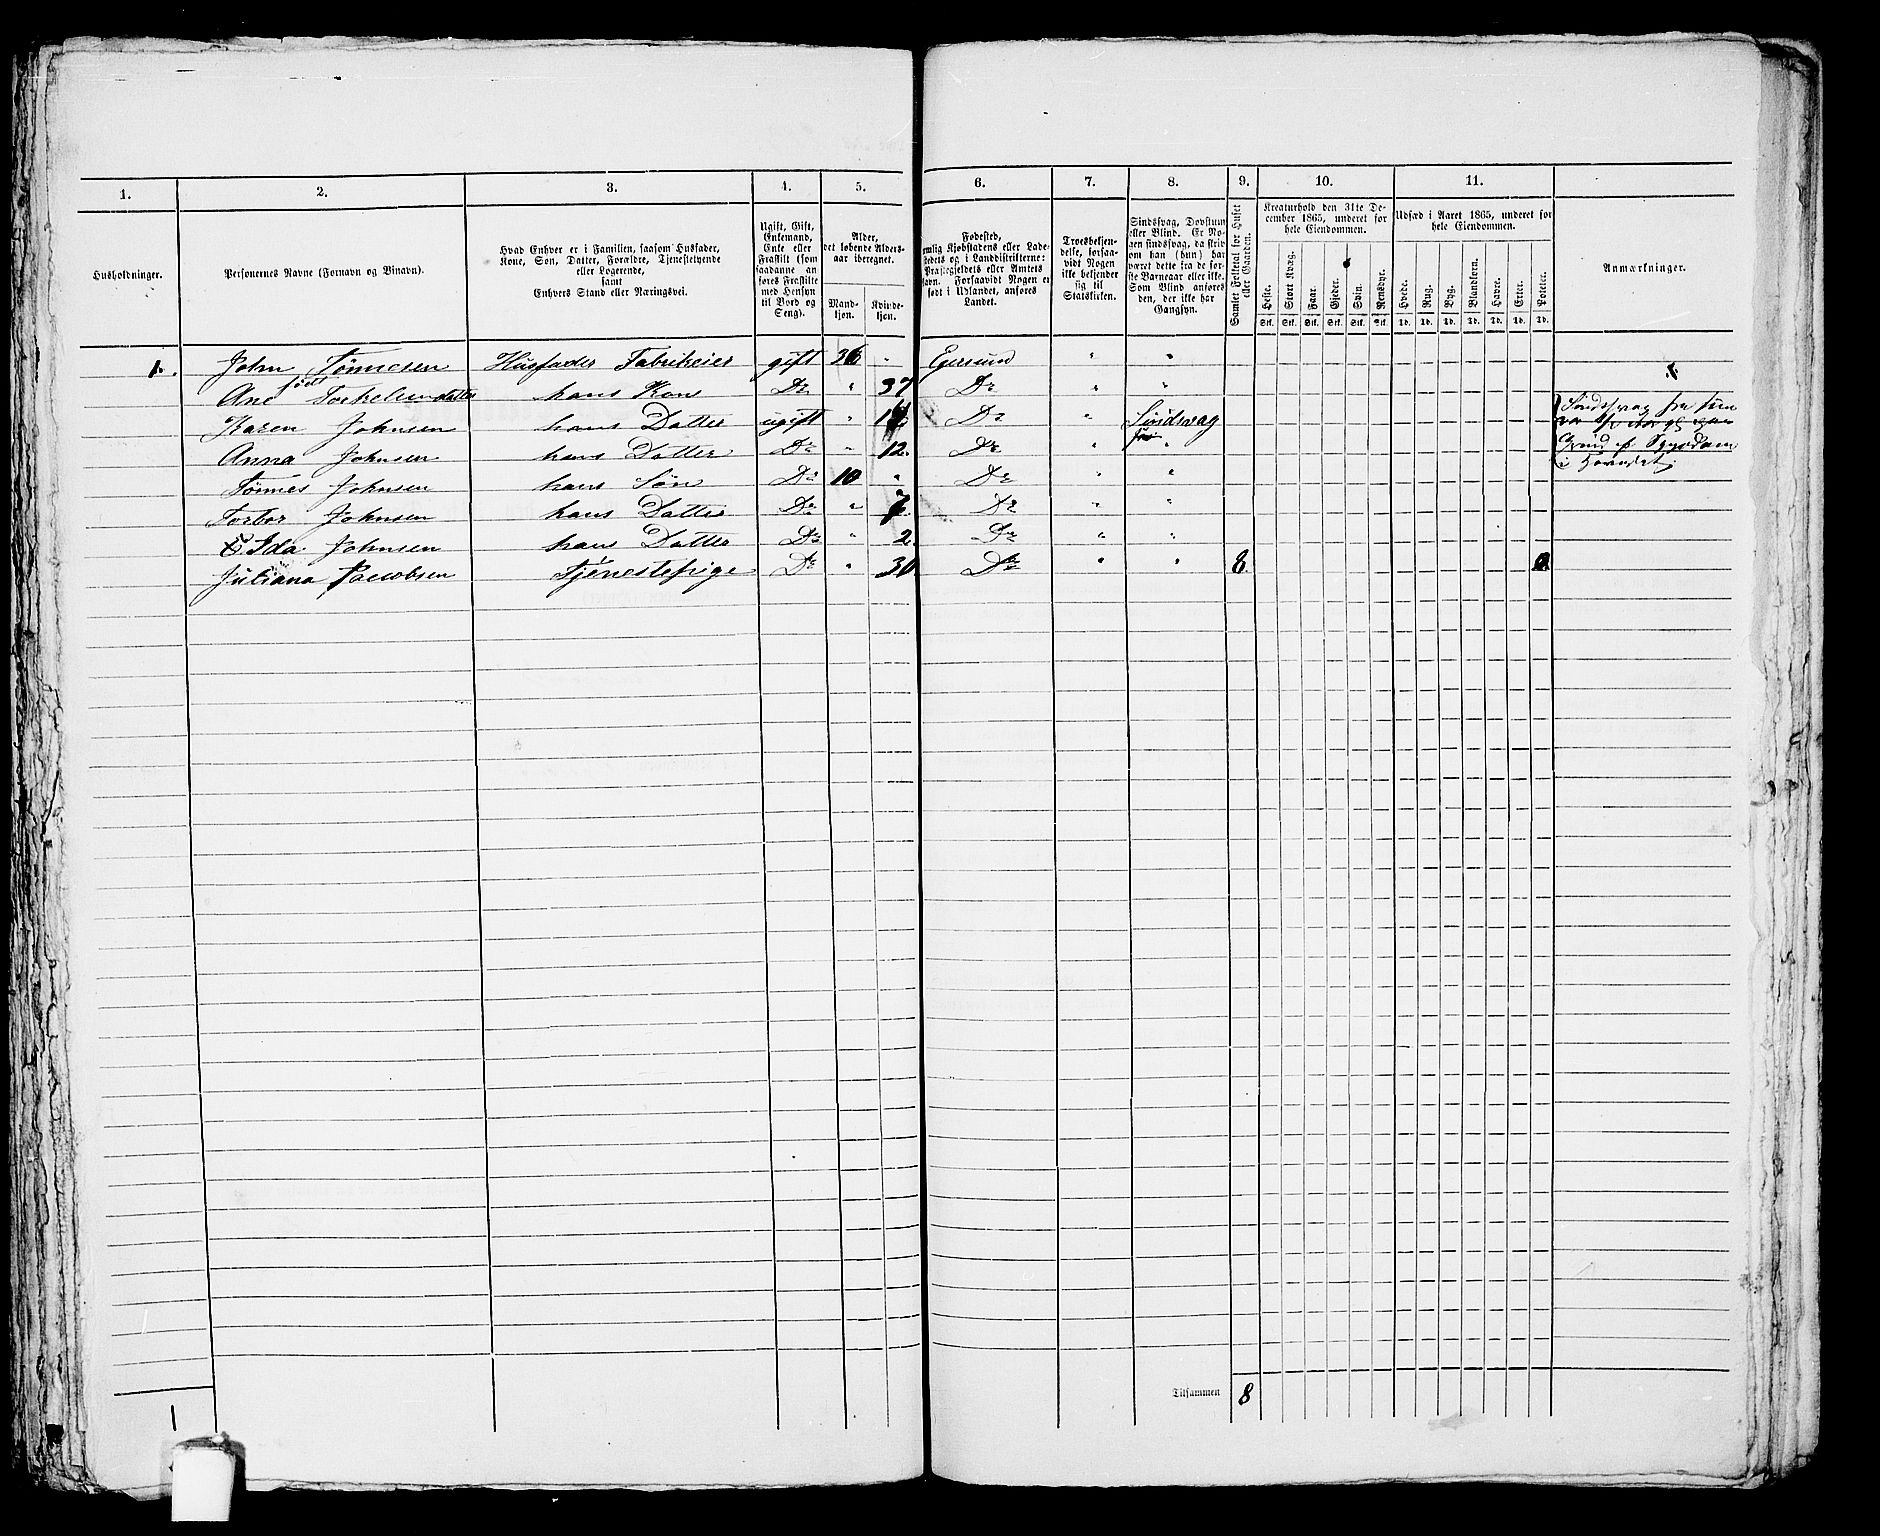 1. 2. 3. 4. 5. 6. 7. 8. 9. 10. 11.
Husholdninger.
Personernes Navne (Fornavn og Tilnavn).
Hvad Enhver er i Familien, saasom Husfader,
Kone, Søn, Datter, Forældre, Tjenestetyende
eller Logerende,
samt
Enhvers Stand eller Næringsvei.
Ugift, Gift,
Enkemand,
Enke eller
Fraskilt (som
saadanne an-
føres Fraskilte
med Hensyn
til Bord og
Seng).
Alder,
det løbende Alders-
aar iberegnet.
Mand-
kjøn.
Kvinde-
kjøn.
Fødested,
nemlig Kjøbstadens eller Lade-
stedets og i Landdistrikterne:
Præstegjeldets eller Amtets
Navn. Forsaavidt Nogen er
født i Udlandet, anføres
Landet.
Troesbekjen-
delse, forsaa-
vidt Nogen
ikke bekjender
sig til
Statskirken.
Sindssvag, Døvstum
eller Blind. Er No-
gen sindssvag, da skriv
om han (hun) har
været dette fra de før-
ste Barneaar eller ikke.
Som Blind anføres
den, der ikke har
Gangsyn.
Samlet Folketal for Huset
eller Gaarden.
Kreaturhold den 31te De-
cember 1865, underet for
hele Eiendommen.
Heste. Stort Kvæg. Faar. Gjeder. Svin. Rensdyr.
Stk. Stk. Stk. Stk. Stk. Stk.
Udsæd i Aaret 1865, underet for
hele Eiendommen.
Hvede. Rug. Byg. Blandkorn. Havre. Erter. Poteter.
Td. Td. Td. Td. Td. Td. Td.
Anmærkninger.
1. John Tønnesen Husfader Fabrikeier gift 36 " Egersund " "
Ane født Torkelsendatter hans Kone Do " 37 Do " "
Karen Johnsen hans Datter ugift " 14 Do " Sindsvag
Anna Johnsen hans Datter Do " 12. Do " "
Tønnes Johnsen hans Søn Do 10 " Do " "
Torbor Johnsen hans Datter Do " 7. Do " "
Ida Johnsen hans Datter Do " 2. Do " "
Juliana Jacobsen Tjenestepige Do " 30 Do " " 8. 0.
Sindssvag fra hun
var
Grund af Sygdom
i Hovedet.
Tilsammen 8
1